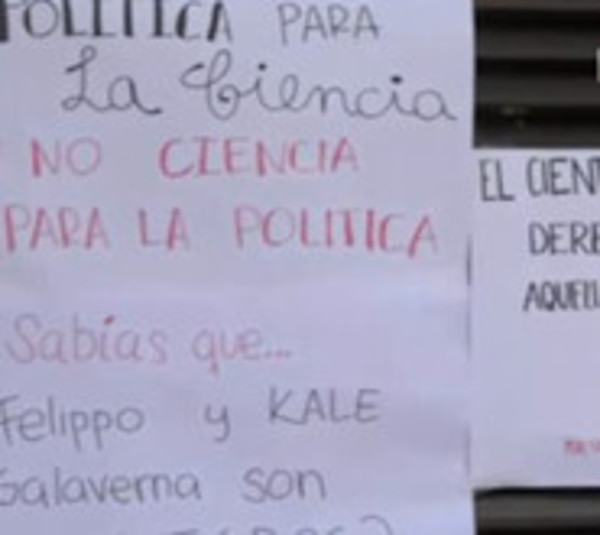 POLITICA PARA
La Ciencia
NO CIENCIA
PARA LA POLITICA
Sabías que...
Felippo y KALE
Galaverna son
EL CIENT
DERE
AQUELL